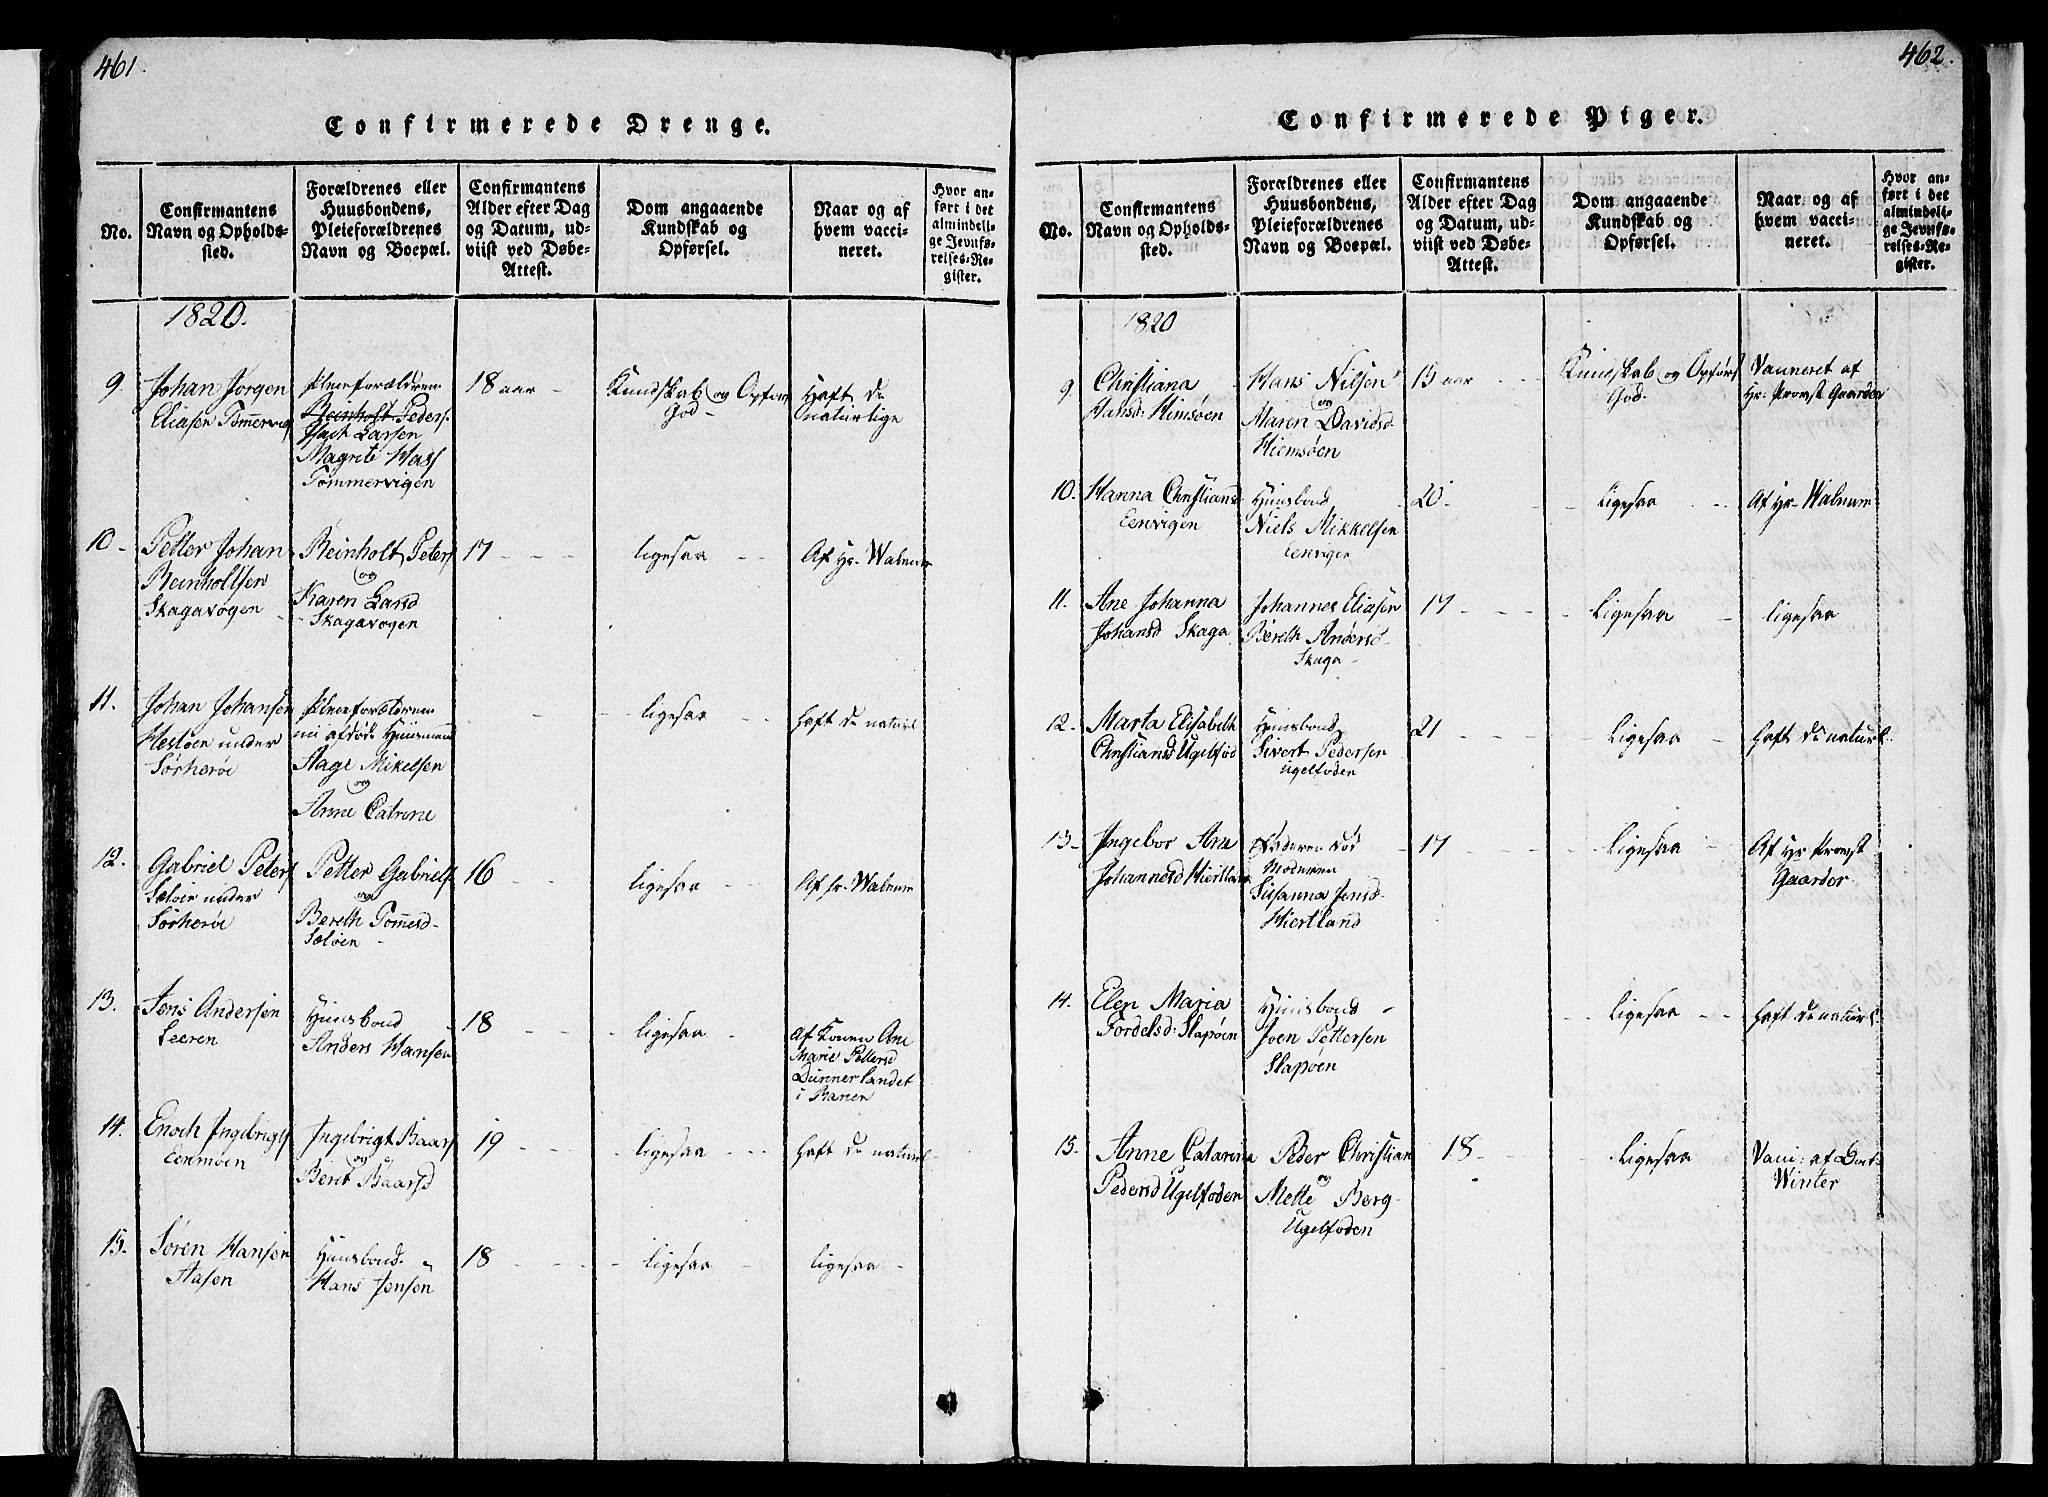 461.
Confirmerede Drenge.
No.
Confirmantens Navn og Opholds-sted.
Forældrenes eller Huusbondens, Pleieforældrenes Navn og Boepæl.
Confirmantens Alder efter Dag og Datum, ud-viist ved Døbe-Attest.
Dom angaaende Kundskab og Opførsel.
Naar og af hvem vacci-neret.
Hvor an-ført i det almindeli-ge Jevnfø-relses-Re-gister.
1820.
9. Johan Jørgen
Eliasen Tømmervig
Pleieforældrene
Reinholt Peders.
Larsen
Magrite Hass
Tømmervigen
18 aar -
Kundskab og Opførs
God -
Haft de
naturlige
10 - Petter Johan
Reinholtsen
Skagavogen
Reinholt Peters
og
Karen Larsd
Skagavogen
17 - - -
ligesaa - -
Af Hr. Walnum
11. Johan Johansen
Hestøen under
Sørherøe
Pleieforælderne
nu afdøde Huusmand
Aage Mikelsen
og
Anne Catrine
ligesaa - -
haft de naturl
12. Gabriel Peters
Sæløen under
Sørherøe
Petter Gabriels
og
Bereth Tommesd -
Sæløen -
16 - - -
ligesaa - -
Af hr. Walnum
13. Jens Andersen
Leeren
Huusbond
Anders Hansen
18 - - -
ligesaa -
Af Konen Ane
Marie Pettersd
Dunnerlandet
i Ranen
14. Enoch Ingebrigts
Eenmoen
Ingebrigt Baars
og
Berit Baarsd
19 - - -
ligesaa - - -
haft de naturl -
15. Søren Hansen
Aasen
Huusbond.
Hans Jensen
18 - - - -
ligesaa -
ligesaa -
462.
Confirmerede Piger.
No.
Confirmantens Navn og Opholds-sted.
Forældrenes eller Huusbondens, Pleieforældrenes Navn og Boepæl.
Confirmantens Alder efter Dag og Datum, ud-viist ved Døbe-Attest.
Dom angaaende Kundskab og Opførsel.
Naar og af hvem vacci-neret.
Hvor an-ført i det almindeli-ge Jevnfø-relses-Re-gister.
1820
9 Christiana
Hansd: Himsøen
Hans Nilsen
og
Maren Davidsd
Hiemsøen
15 aar - -
Kundskab og Opførs
God.
Vanneret af
Hr. Provst Gaarder
10. Hanna Christiansd
Eenvigen
Huusbond
Niels Mikkelsen
Eenvigen
20 - -
ligesaa - -
Af Hr. Walnum
11. Ane Johanna
Johansd Skaga
Johannes Eliasen
Bereth Andersd -
Skaga -
17 - - -
Ligesaa -
ligesaa
12. Marta Elisabeth
Christiansd Ugelfod
Huusbond
Sivert Pedersen
Ugelfoden
21 - - -
Ligesaa -
haft de naturl.
13 - Ingebor Ane
Johannesd Hiertland
Faderen død
Moderen
Susanna Jensd -
Hiertland
17 - - -
Ligesaa -
Af Hr Provst
Gaarder
14. Elen Maria
Fordelsd: Slapøen
Huusbond
Joen Pettersen
Slapøen
ligesaa - -
haft de naturl.
15. Anne Catarina
Pedersd Ugelfoden
Peder Christian
og
Mette Berg -
Ugelfoden
18 - -
Ligesaa
Vani: af Doct:
Winter